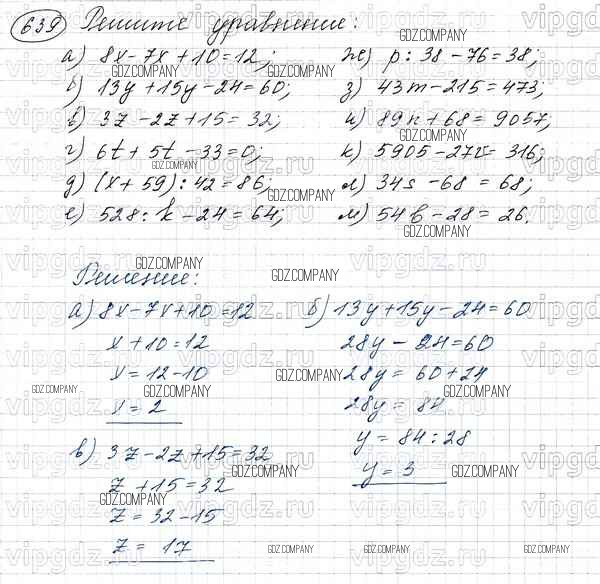 639 Решите уравнение:
а) 8x-7x+10=12; ж) p:38-76=38;
б) 13y+15y-24=60; з) 43m-215=473;
в) 3z-2z+15=32; и) 89n+68=9057,
г) 6t+5t-33=0; к) 5905-27v=316;
д) (x+59):42=86; л) 34s-68=68;
е) 528:k-24=64; м) 54b-28=26.
Решение:
а) 8x-7x+10=12 б) 13y+15y-24=60
x+10=12 28y-24=60
x=12-10 28y=60+24
x=2 28y=84
в) 3z-2z+15=32 y=84:28
z+15=32 y=3
z=32-15
z=17
GDZ.COMPANY
vipgdz.ru